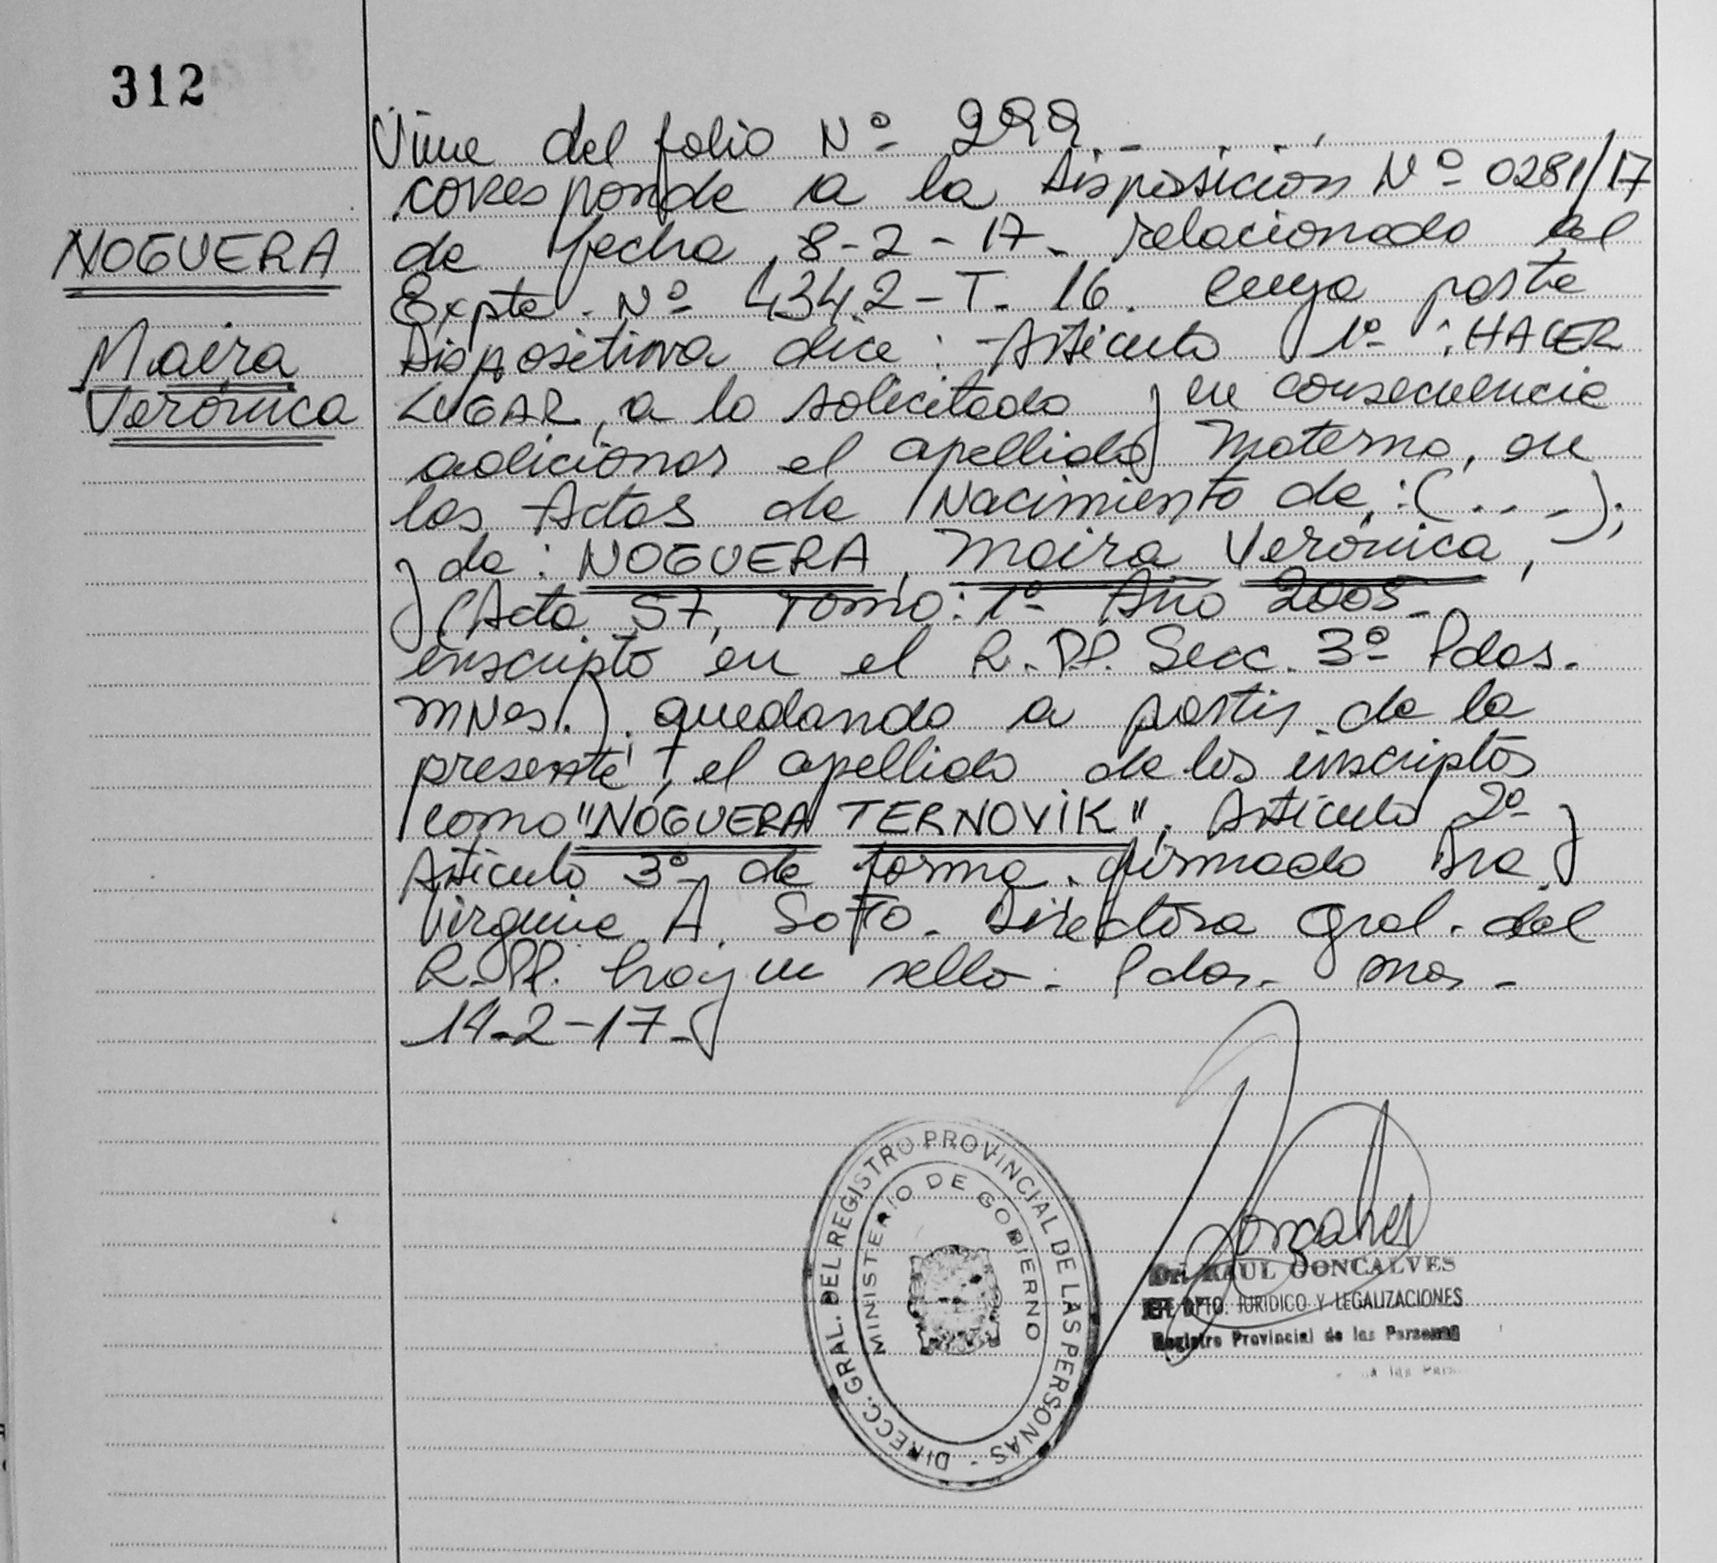 312
NOGUERA
Maira
Verónica
Viene del folio Nº 299.-
corresponde a la Disposición Nº 0281/17
de fecha 8-2-17. relacionado al
Expte. Nº 4342-T-16. cuya parte
Dispositiva dice: Artículo 1º: HACER
LUGAR, a lo solicitado y en consecuencia
adicionar el apellido materno, en
las Actas de Nacimiento de: (...);
y de: NOGUERA, Maira Verónica,
(Acta 57, Tomo: 1º Año 2005-
inscripto en el R.P.P. Secc. 3º Pdas.
Mnes.), quedando a partir de la
presente, el apellido de los inscriptos
como "NOGUERA TERNOVIK". Artículo 2º y
Artículo 3º de forma. firmado Dra.
Virginia A. Soto. Directora Gral. del
R.P.P. hay un sello. Pdas. Mnes.
14-2-17.-
DIRECC. GRAL. DEL REGISTRO PROVINCIAL DE LAS PERSONAS -
MINISTERIO DE GOBIERNO
Dr. RAUL GONCALVES
DPTO. JURIDICO Y LEGALIZACIONES
Registro Provincial de las Personas